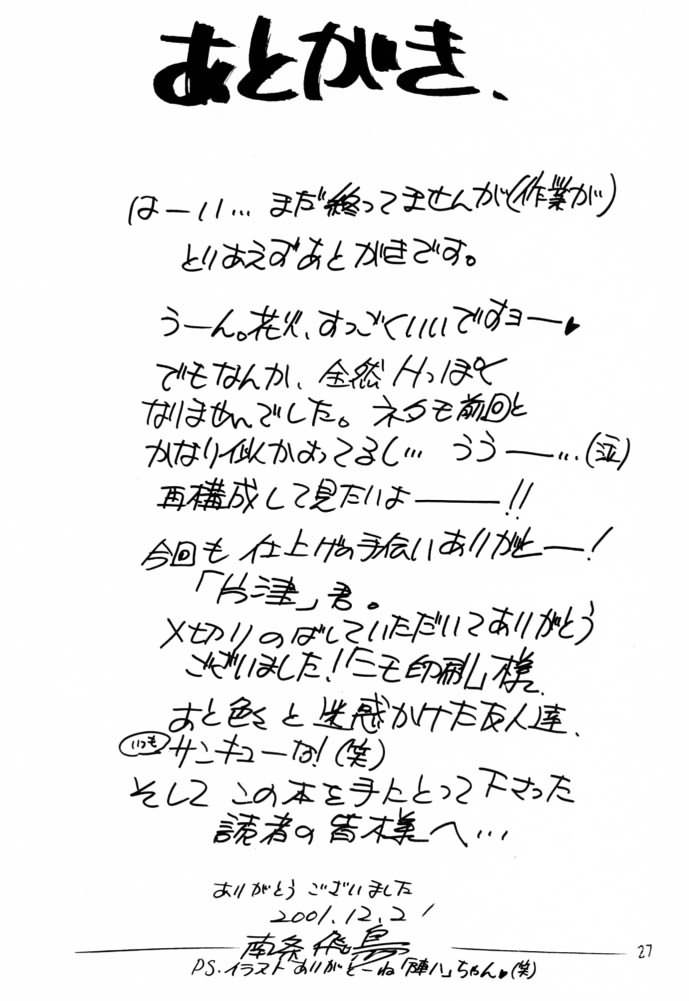 あとがき、
はーい…まだ終ってませんが(作業が)
とりあえずあとがきです。
うーん。花火、すっごくいいですョー♥
でもなんか、全然Hっぽく
なりませんでした。ネタも前回と
かなり似かよってるし… うぅー…(泣)
再構成して見たいよ――!!
今回も仕上げの手伝いありがとー!
「片津」君。
〆切りのばしていただいてありがとう
ございました!「ニモ印刷」様、
あと色々と迷惑かけた友人達、
いつも サンキューな!(笑)
そして この本を手にとって下さった
読者の皆様へ…
ありがとうございました
2001.12.21
南条飛鳥
27
PS.イラストありがとーね「陣八」ちゃん♥(笑)